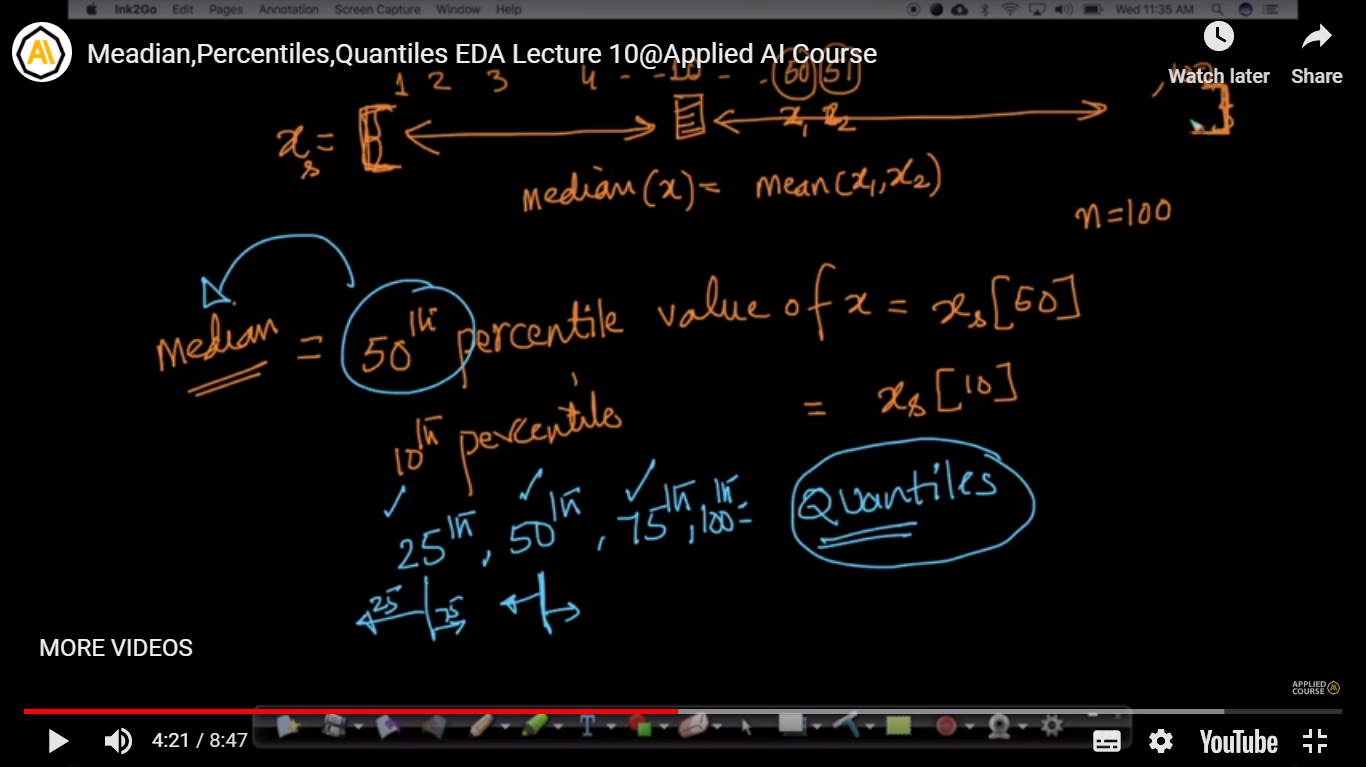 Ink2Go Edit Pages Annotation Screen Capture Window Help Wed 11:35 AM
Meadian,Percentiles,Quantiles EDA Lecture 10@Applied AI Course
Watch later Share
1 2 3 4 - - 10 - - 50 51 , 100
xs = x1 x2
median(x) = mean(x1,x2)
n=100
Median = 50th percentile value of x = xs[50]
10th percentiles = xs[10]
25th, 50th, 75th, 100th = Quantiles
25 75
MORE VIDEOS
APPLIED COURSE
4:21 / 8:47 YouTube